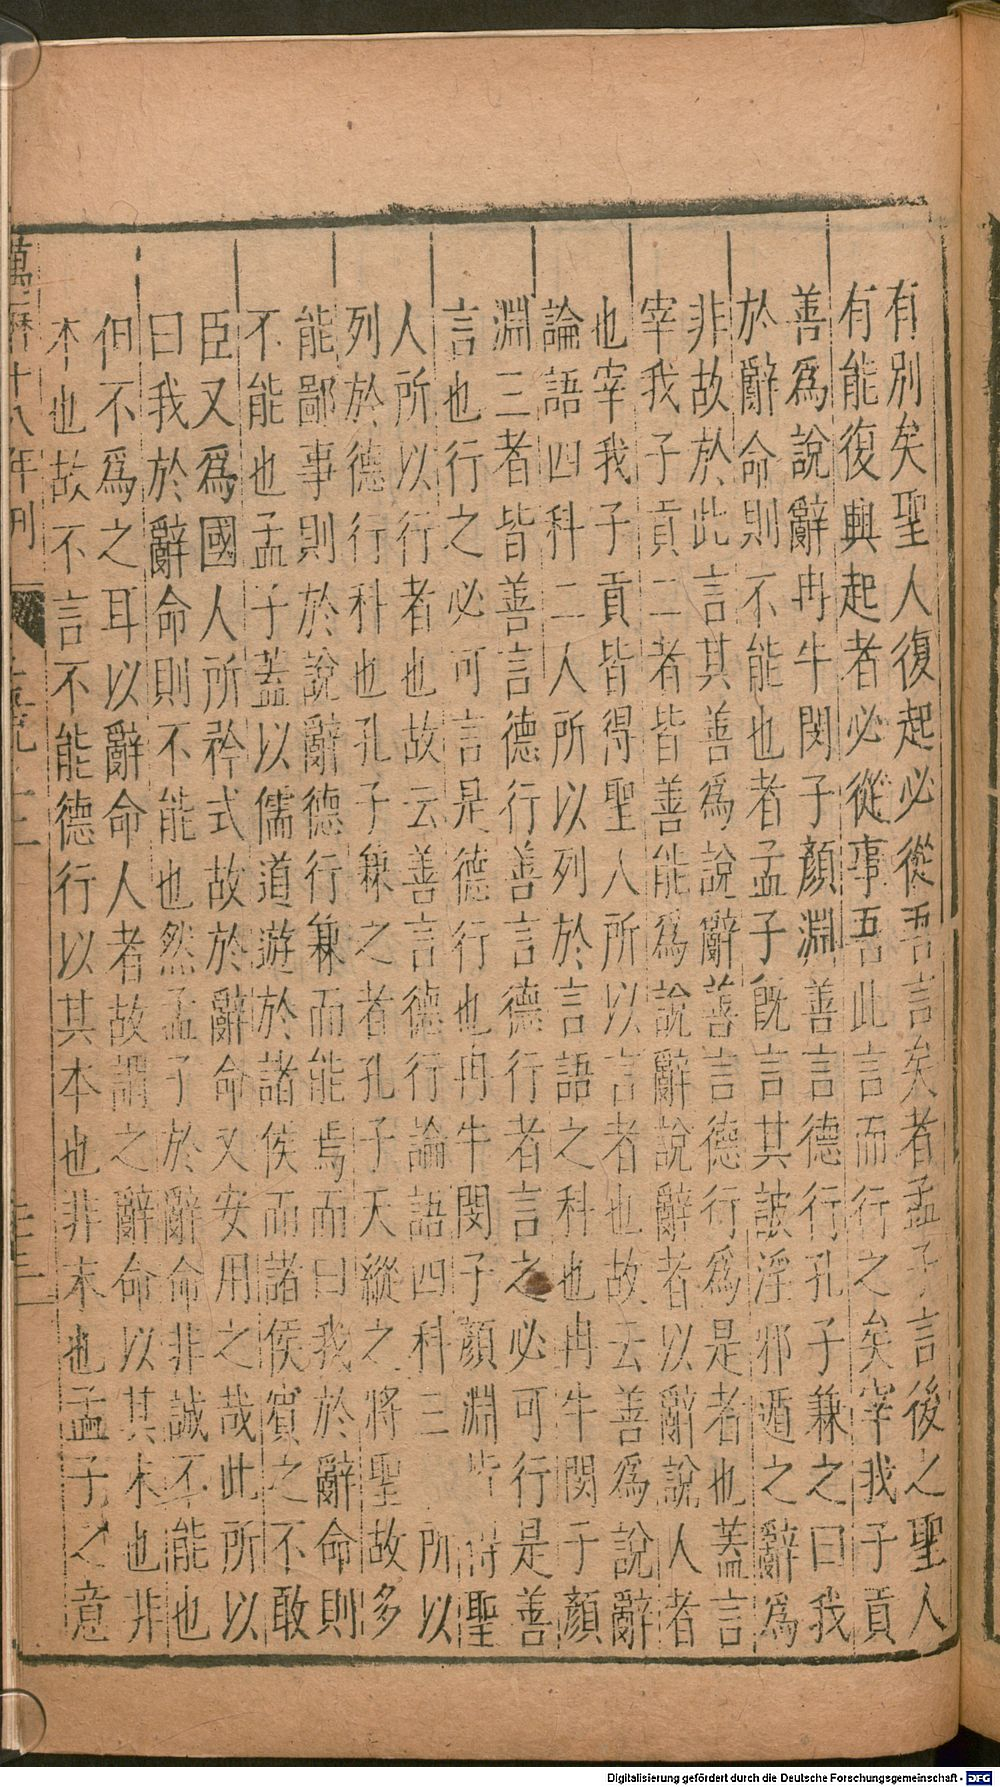 有別矣聖人復起必從吾言矣者孟子言後之聖人
有能復興起者必從事吾此言而行之矣宰我子貢
善爲說辭冉牛閔子顏淵善言德行孔子兼之曰我
於辭命則不能也者孟子旣言其詖淫邪遁之辭爲
非故於此言其善爲說辭善言德行爲是者也蓋言
宰我子貢二者皆善能爲說辭說辭者以辭說人者
也宰我子貢皆得聖人所以言者也故云善爲說辭
論語四科二人所以列於言語之科也冉牛閔子顏
淵三者皆善言德行善言德行者言之必可行是善
言也行之必可言是德行也冉牛閔子顏淵皆得聖
人所以行者也故云善言德行論語四科三 所以
列於德行科也孔子兼之者孔子天縱之將聖故多
能鄙事則於說辭德行兼而能焉而曰我於辭命則
不能也孟子蓋以儒道遊於諸侯而諸侯賓之不敢
臣又爲國人所矜式故於辭命又安用之哉此所以
曰我於辭命則不能也然孟子於辭命非誠不能也
但不爲之耳以辭命人者故謂之辭命以其末也非
本也故不言不能德行以其本也非末也孟子之意
萬曆十八年刊